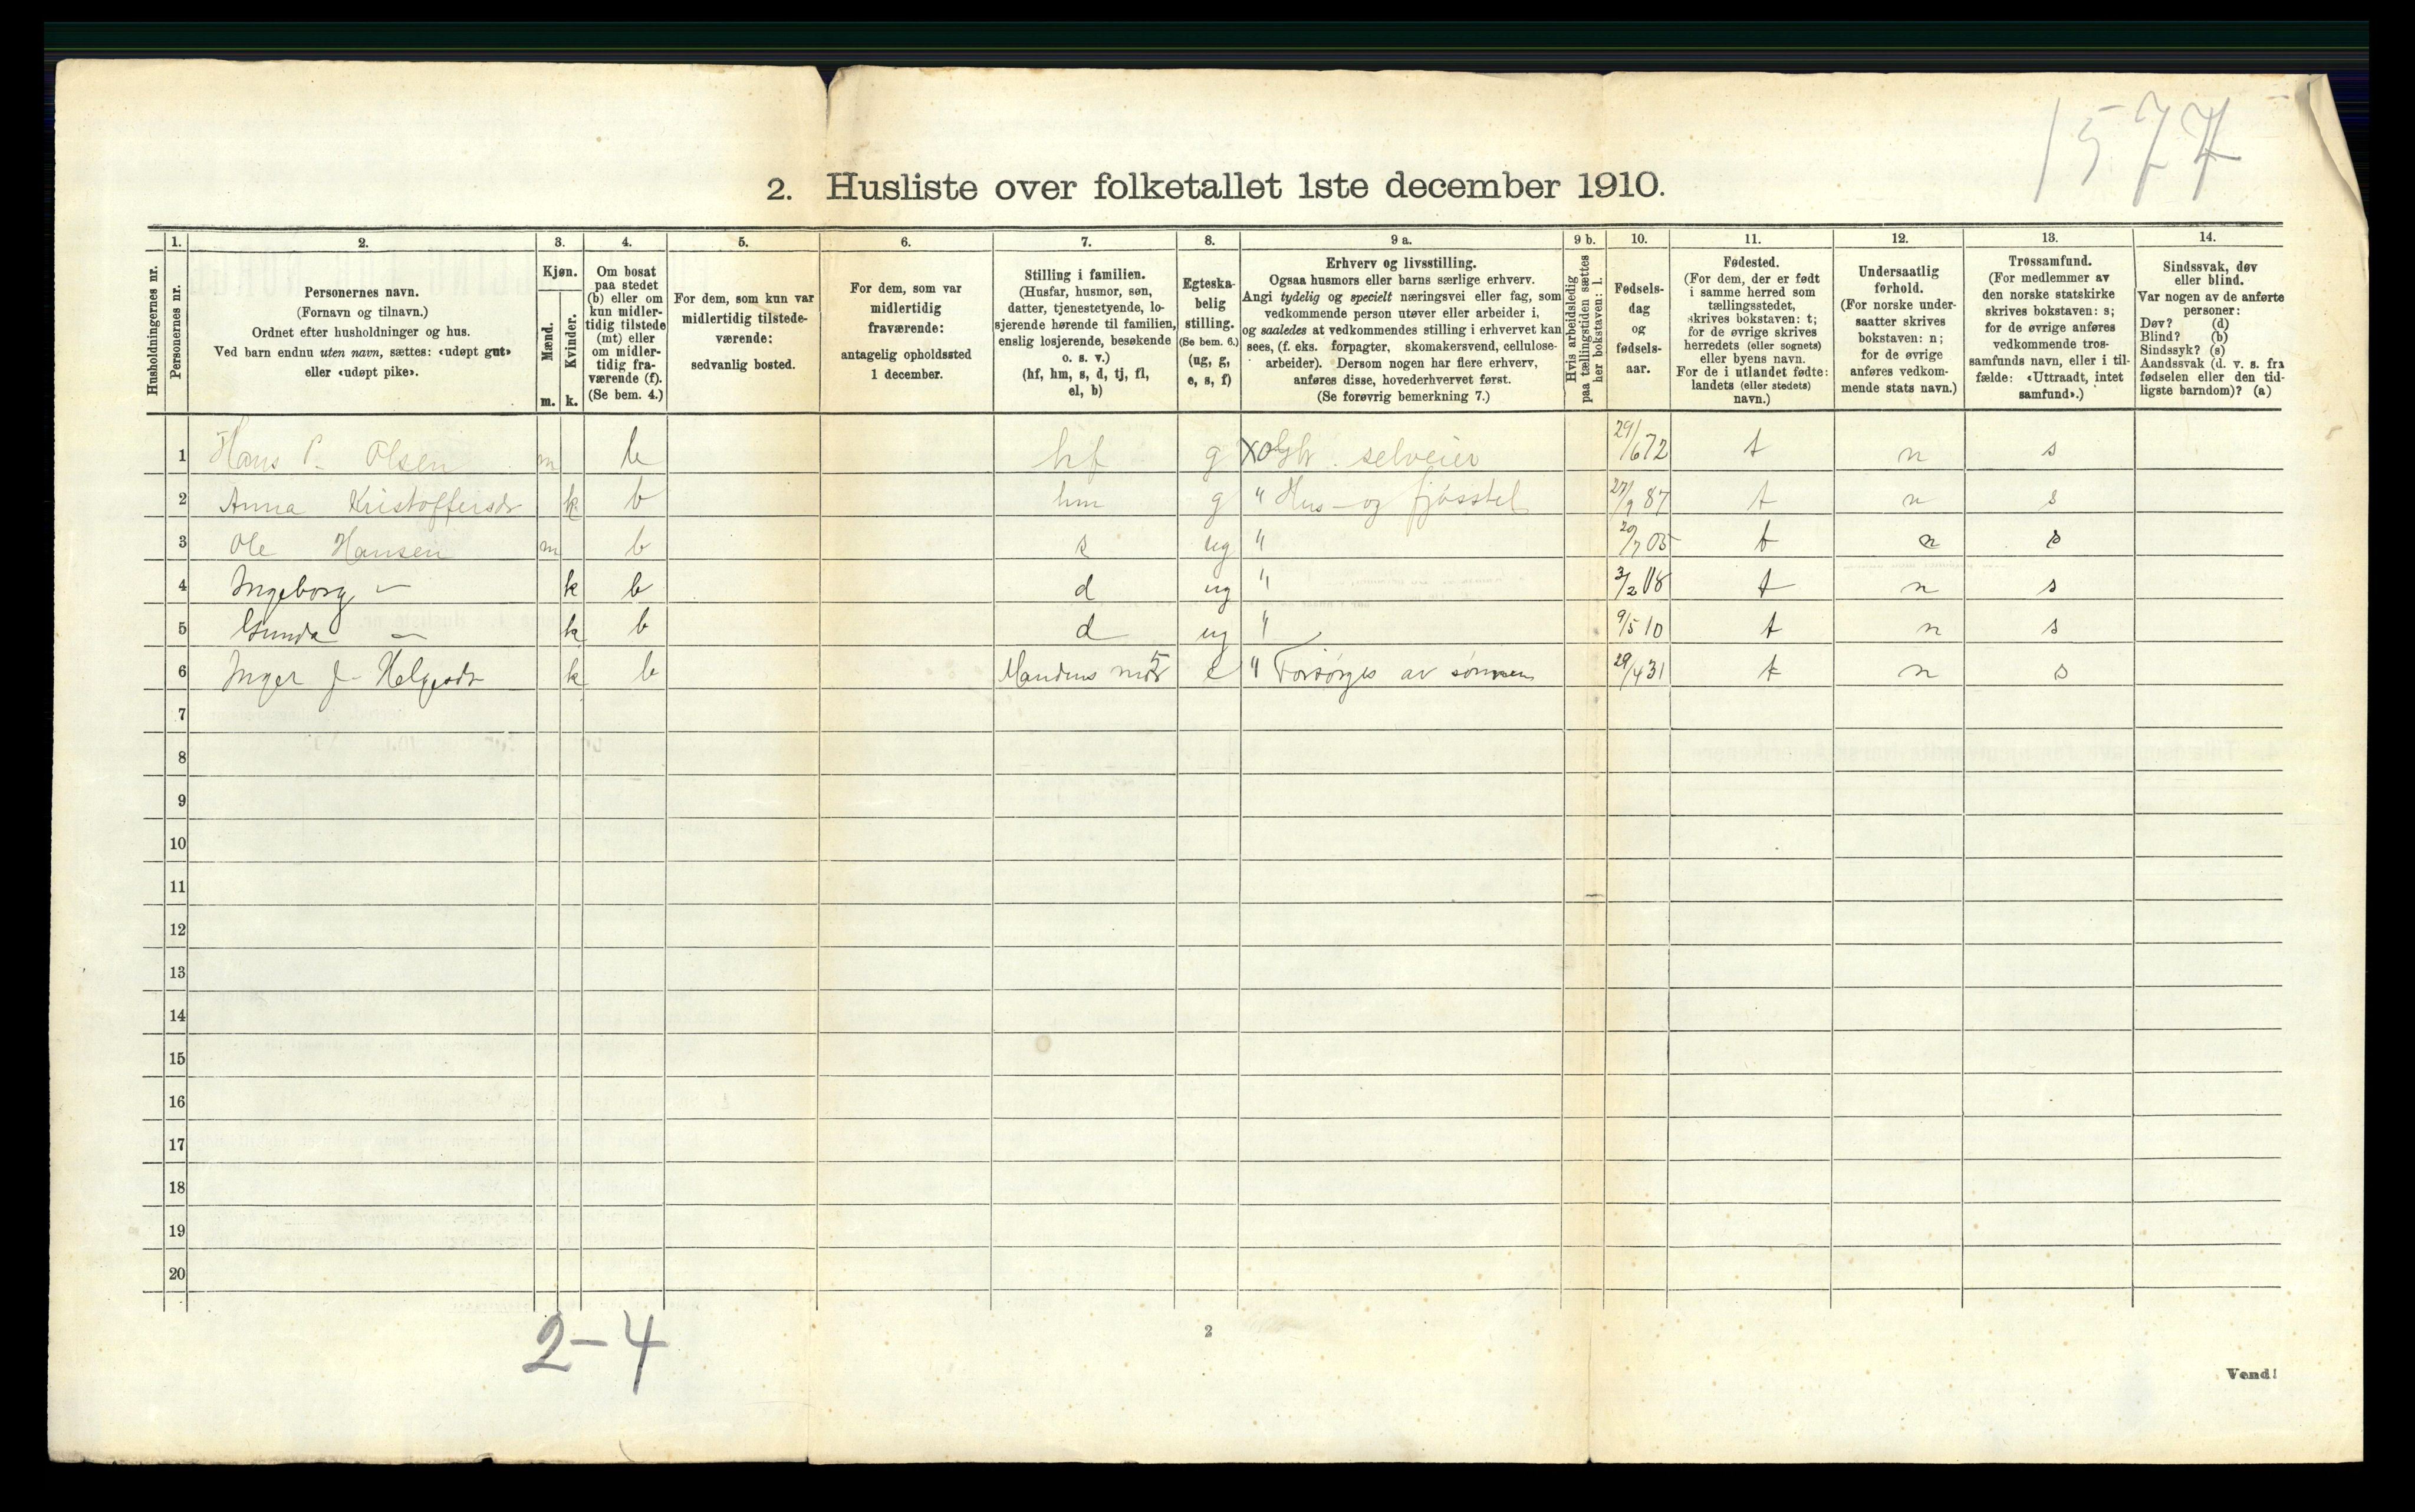 1577
2. Husliste over folketallet 1ste december 1910.
Husholdningernes nr.
1. Personernes nr.
2. Personernes navn.
(Fornavn og tilnavn.)
Ordnet efter husholdninger og hus.
Ved barn endnu uten navn, sættes: «udøpt gut»
eller «udøpt pike».
3. Kjøn.
Mænd. m.
Kvinder. k.
4. Om bosat
paa stedet
(b) eller om
kun midler-
tidig tilstede
(mt) eller
om midler-
tidig fra-
værende (f).
(Se bem. 4.)
5. For dem, som kun var
midlertidig tilstede-
værende:
sedvanlig bosted.
6. For dem, som var
midlertidig
fraværende:
antagelig opholdssted
1 december.
7. Stilling i familien.
(Husfar, husmor, søn,
datter, tjenestetyende, lo-
sjerende hørende til familien,
enslig losjerende, besøkende
o. s. v.)
(hf, hm, s, d, tj, fl,
el, b)
8. Egteska-
belig
stilling.
(Se bem. 6.)
(ug, g,
e, s, f)
9 a. Erhverv og livsstilling.
Ogsaa husmors eller barns særlige erhverv.
Angi tydelig og specielt næringsvei eller fag, som
vedkommende person utøver eller arbeider i,
og saaledes at vedkommendes stilling i erhvervet kan
sees, (f. eks. forpagter, skomakersvend, cellulose-
arbeider). Dersom nogen har flere erhverv,
anføres disse, hovederhvervet først.
(Se forøvrig bemerkning 7.)
9 b. Hvis arbeidsledig
paa tællingstiden sættes
her bokstaven: l.
10. Fødsels-
dag
og
fødsels-
aar.
11. Fødested.
(For dem, der er født
i samme herred som
tællingsstedet,
skrives bokstaven: t;
for de øvrige skrives
herredets (eller sognets)
eller byens navn.
For de i utlandet fødte:
landets (eller stedets)
navn.)
12. Undersaatlig
forhold.
(For norske under-
saatter skrives
bokstaven: n;
for de øvrige
anføres vedkom-
mende stats navn.)
13. Trossamfund.
(For medlemmer av
den norske statskirke
skrives bokstaven: s;
for de øvrige anføres
vedkommende tros-
samfunds navn, eller i til-
fælde: «Uttraadt, intet
samfund».)
14. Sindssvak, døv
eller blind.
Var nogen av de anførte
personer:
Døv? (d)
Blind? (b)
Sindssyk? (s)
Aandssvak (d. v. s. fra
fødselen eller den tid-
ligste barndom)? (a)
1 Hans P. Olsen m b hf g selveier 29/6 72 t n s
2 Anna Kristoffersdr k b hm g " Hus- og fjøsstel 27/9 87 t n s
3 Ole Hansen m b s ug " 20/7 05 t n s
4 Ingeborg — k b d ug " 3/2 08 t n s
5 Gunda — k b d ug " 9/5 10 t n s
6 Inger J- Helgesdr k b Mandens mor e " Forsørges av sønnen 29/4 31 t n s
7
8
9
10
11
12
13
14
15
16
17
18
19
20
2-4
2
Vend!